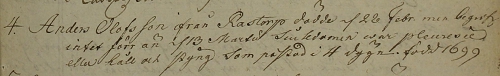 4. Anders Olofsson ifrån Rastorp dödde d. 22 Febr. men begrofs
intet förr än d. 13 Martii Siukdomen war pleuresie
eller håll och styng som påstod i 4 dygn. född 1699